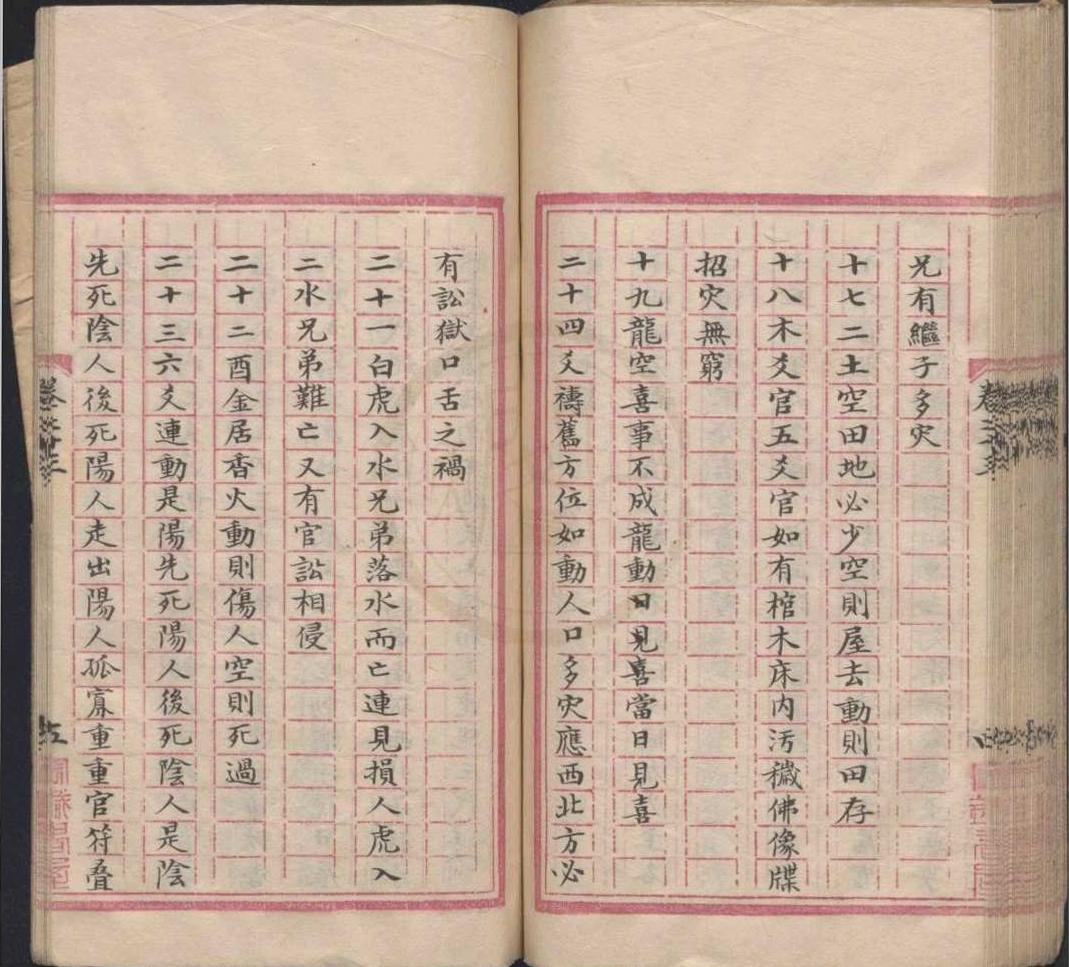 兄有繼子多灾
十七二土空田地必少空則屋去動則田存
十八木爻官五爻官如有棺木床内汚穢佛像牒
招灾無窮
十九龍空喜事不成龍動日見喜當日見喜
二十四爻禱舊方位如動人口多灾應西北方必
有訟獄口舌之禍
二十一白虎入水兄弟落水而亡連見損人虎入
二水兄弟難亡又有官訟相侵
二十二酉金居香火動則傷人空則死過
二十三六爻連動是陽先死陽人後死陰人是陰
先死陰人後死陽人走出陽人孤寡重重官符疊